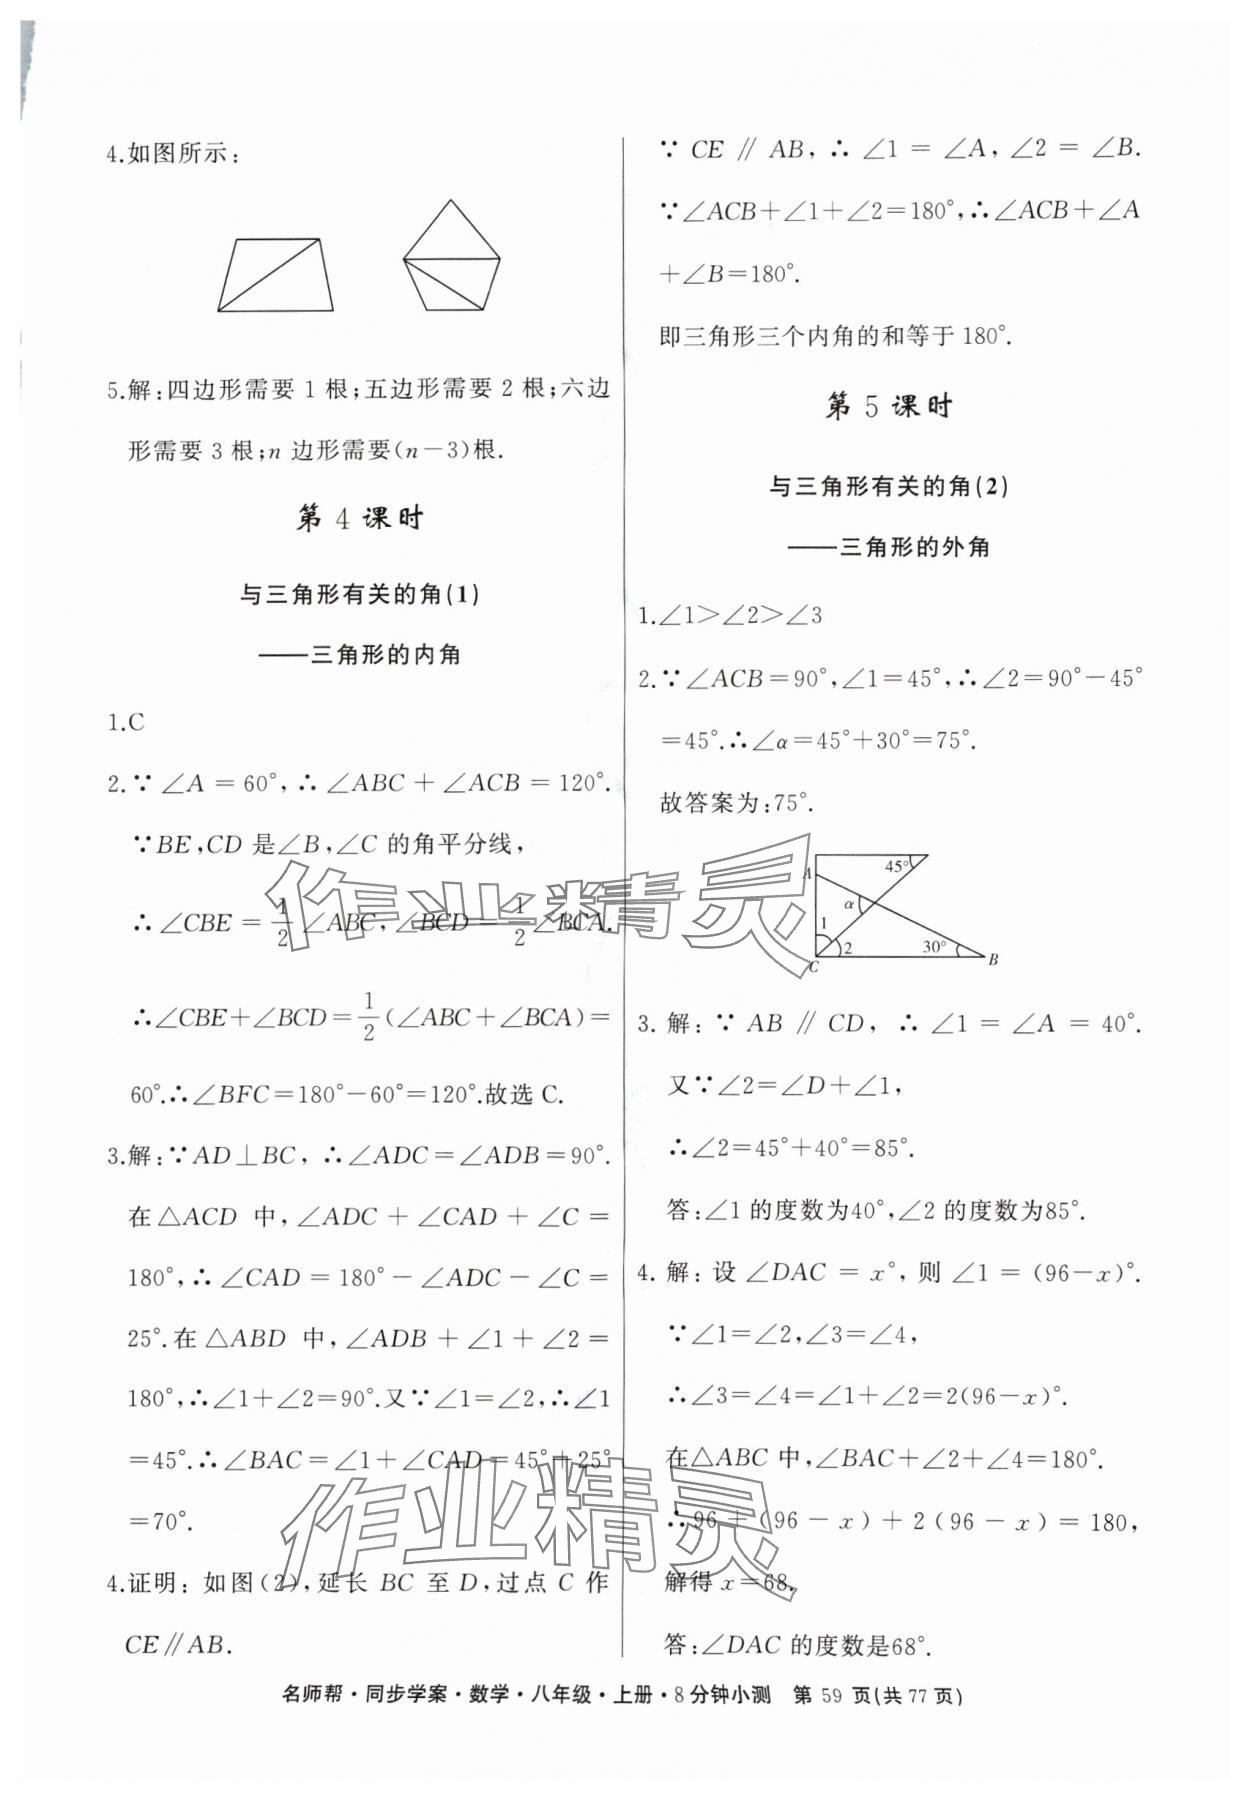 4.如图所示:
5.解:四边形需要 1 根;五边形需要 2 根;六边
形需要 3 根;n 边形需要(n－3)根.
第 4 课时
与三角形有关的角(1)
——三角形的内角
1.C
2.∵∠A＝60°,∴∠ABC＋∠ACB＝120°.
∵BE,CD 是∠B,∠C 的角平分线,
∴∠CBE＝1/2∠ABC,∠BCD＝1/2∠BCA.
∴∠CBE＋∠BCD＝1/2(∠ABC＋∠BCA)＝
60°.∴∠BFC＝180°－60°＝120°.故选 C.
3.解:∵AD⊥BC,∴∠ADC＝∠ADB＝90°.
在△ACD 中,∠ADC＋∠CAD＋∠C＝
180°,∴∠CAD＝180°－∠ADC－∠C＝
25°.在△ABD 中,∠ADB＋∠1＋∠2＝
180°,∴∠1＋∠2＝90°.又∵∠1＝∠2,∴∠1
＝45°.∴∠BAC＝∠1＋∠CAD＝45°＋25°
＝70°.
4.证明:如图(2),延长 BC 至 D,过点 C 作
CE∥AB.
∵CE∥AB,∴∠1＝∠A,∠2＝∠B.
∵∠ACB＋∠1＋∠2＝180°,∴∠ACB＋∠A
＋∠B＝180°.
即三角形三个内角的和等于 180°.
第 5 课时
与三角形有关的角(2)
——三角形的外角
1.∠1＞∠2＞∠3
2.∵∠ACB＝90°,∠1＝45°,∴∠2＝90°－45°
＝45°.∴∠α＝45°＋30°＝75°.
故答案为:75°.
A
45°
α
1
2
30°
C
B
3.解:∵AB∥CD,∴∠1＝∠A＝40°.
又∵∠2＝∠D＋∠1,
∴∠2＝45°＋40°＝85°.
答:∠1 的度数为40°,∠2 的度数为85°.
4.解:设∠DAC＝x°,则∠1＝(96－x)°.
∵∠1＝∠2,∠3＝∠4,
∴∠3＝∠4＝∠1＋∠2＝2(96－x)°.
在△ABC 中,∠BAC＋∠2＋∠4＝180°.
∴96＋(96－x)＋2(96－x)＝180,
解得 x＝68.
答:∠DAC 的度数是68°.
作业精灵
作业精灵
名师帮·同步学案·数学·八年级·上册·8 分钟小测 第 59 页(共 77 页)